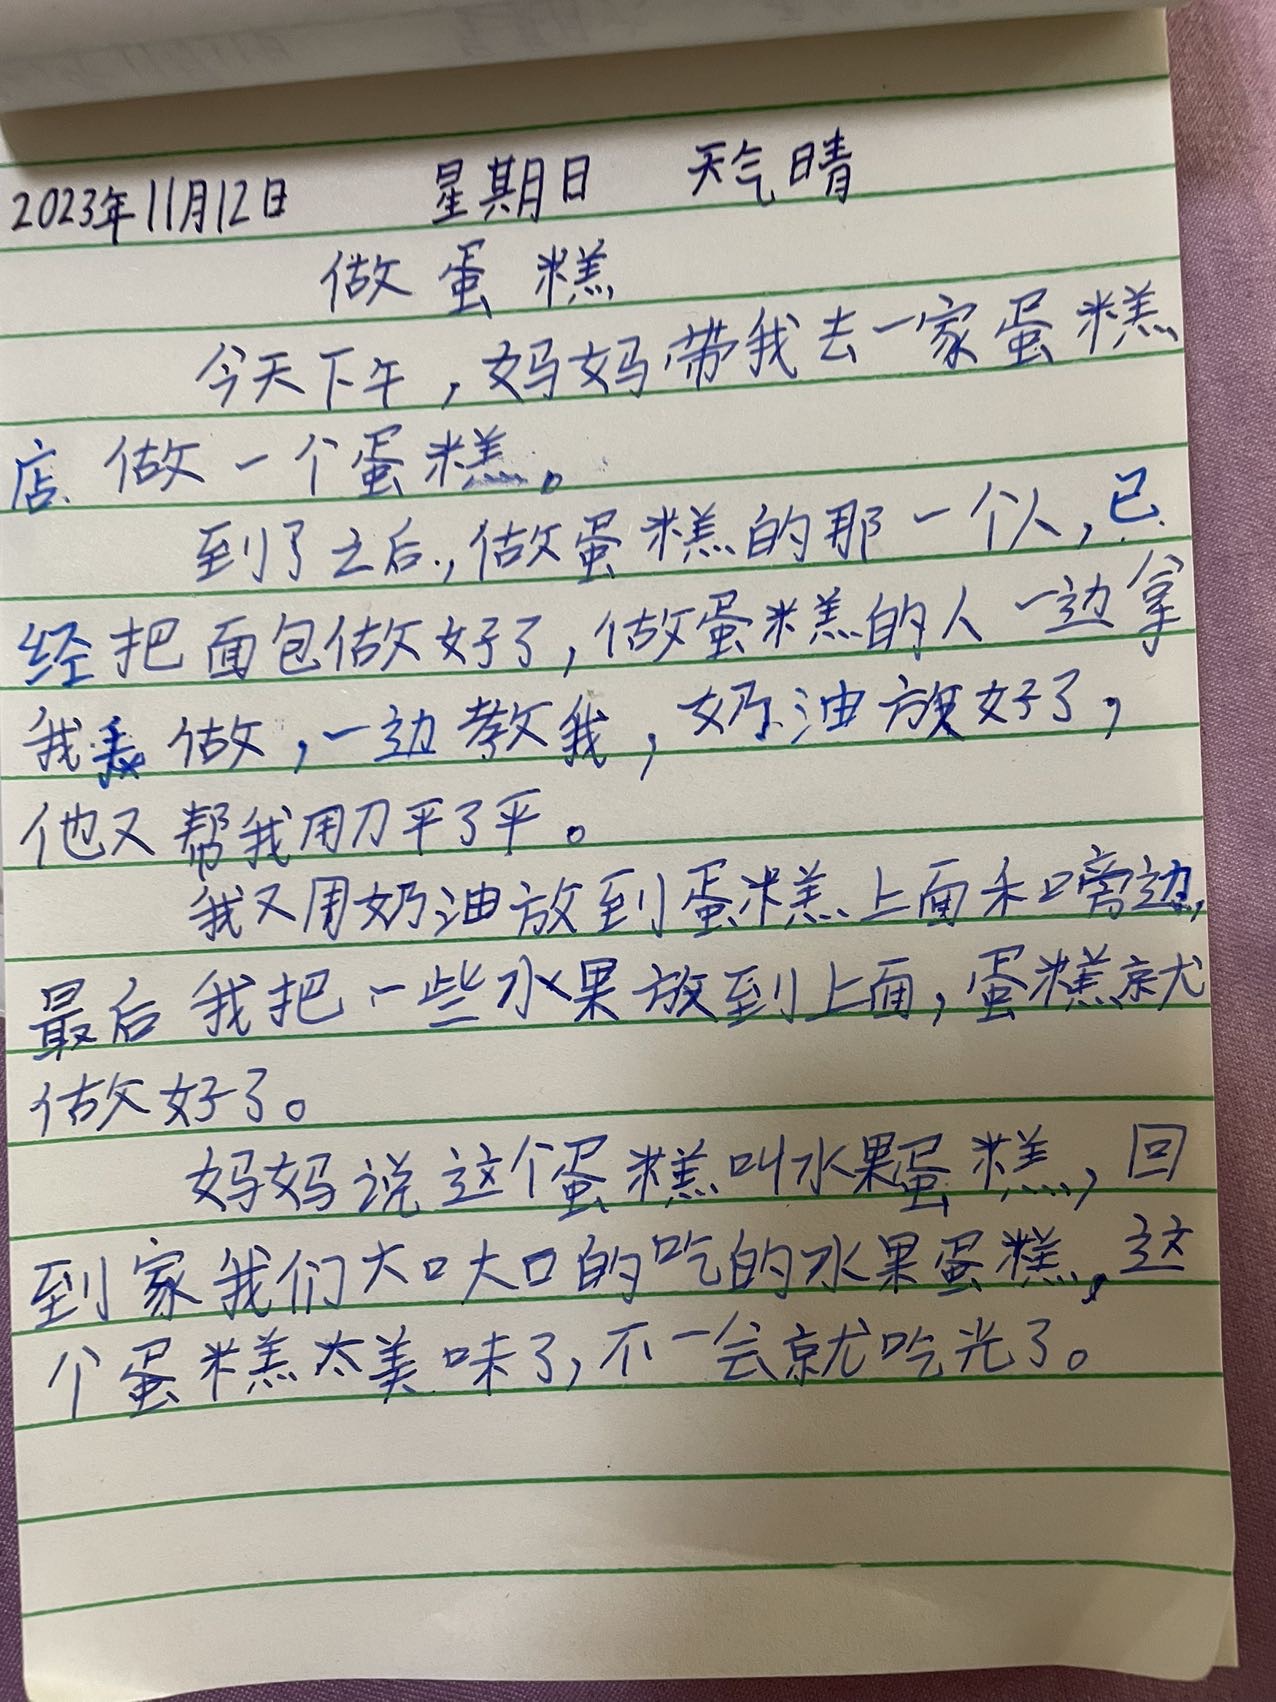 2023年11月12日 星期日 天气晴
做蛋糕
今天下午，妈妈带我去一家蛋糕
店做一个蛋糕。
到了之后，做蛋糕的那一个人，已
经把面包做好了，做蛋糕的人一边拿
我做，一边教我，奶油放好了，
他又帮我用刀平了平。
我又用奶油放到蛋糕上面和旁边，
最后我把一些水果放到上面，蛋糕就
做好了。
妈妈说这个蛋糕叫水果蛋糕，回
到家我们大口大口的吃的水果蛋糕，这
个蛋糕太美味了，不一会就吃光了。